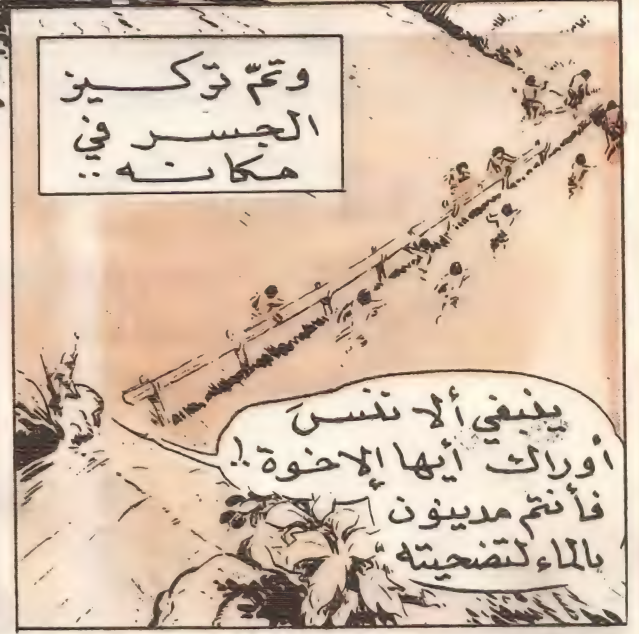 وتمّ تركــيز
الجســر في
مكانــه ..
ينبغي ألا ننسَ
أوراك أيها الإخوة !!
فأنتم مدينون
بالماء لتضحيته